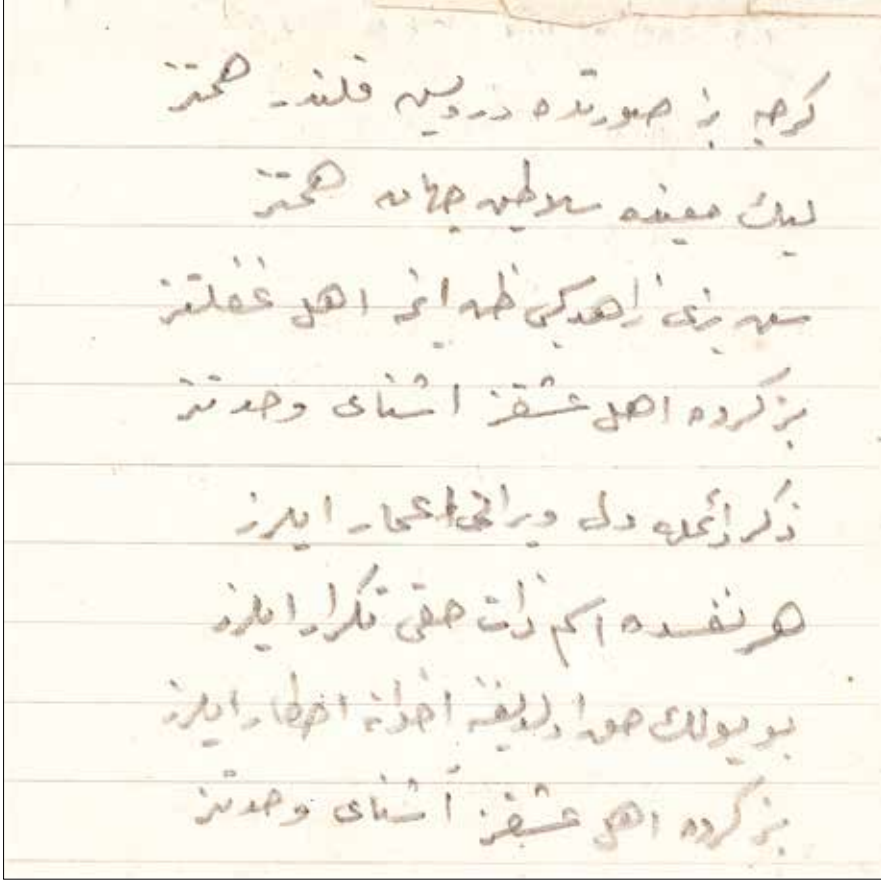 كرچه بز صورتده درويش قلندر همتز
ليك معنيده سلاطين جهان همتز
سن بزى زاهد كبى ظن ايتمه اهل غفلتز
بز كروه اهل عشقز اشناى وحدتز
ذكر دائمله دل ويرانى اعمار ايلرز
هر نفسده اسم ذات حقى تكرار ايلرز
بو يولك حق اولديغن اخوانه اخطار ايلرز
بز كروه اهل عشقز أشناى وحدتز